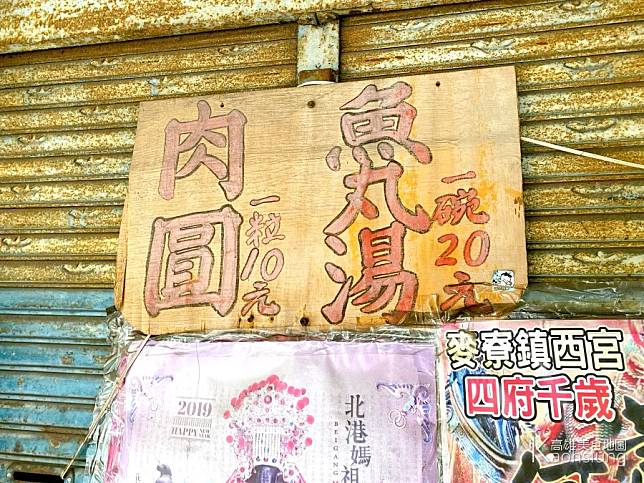 魚丸湯
一碗20元
肉圓
一粒10元
2019
HAPPY NEW YEAR
北港媽祖
BEIGANG
麥寮鎮西宮
四府千歲
高雄美食地圖
Kaohsiung